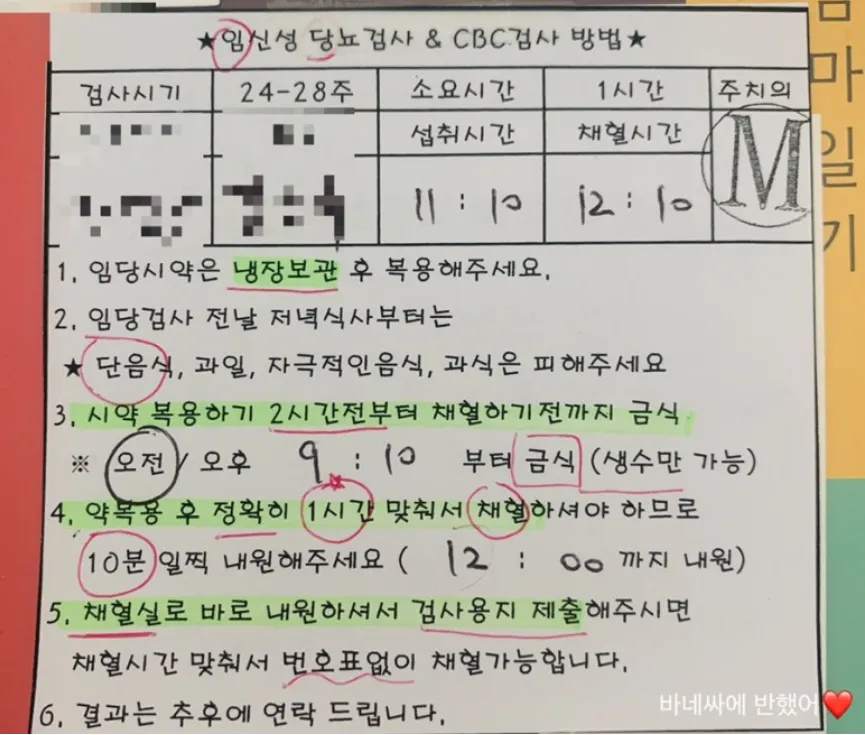 ★임신성 당뇨검사 & CBC검사 방법★
검사시기 24-28주 소요시간 1시간 주치의
섭취시간 채혈시간
11:10 12:10
M
1. 임당시약은 냉장보관 후 복용해주세요.
2. 임당검사 전날 저녁식사부터는
★ 단음식, 과일, 자극적인음식, 과식은 피해주세요
3. 시약 복용하기 2시간전부터 채혈하기전까지 금식
※ 오전 / 오후 9:10 부터 금식 (생수만 가능)
4. 약복용 후 정확히 1시간 맞춰서 채혈하셔야 하므로
10분 일찍 내원해주세요 ( 12 : 00 까지 내원)
5. 채혈실로 바로 내원하셔서 검사용지 제출해주시면
채혈시간 맞춰서 번호표없이 채혈가능합니다.
6. 결과는 추후에 연락 드립니다.
마
일
기
바네싸에 반했어❤️